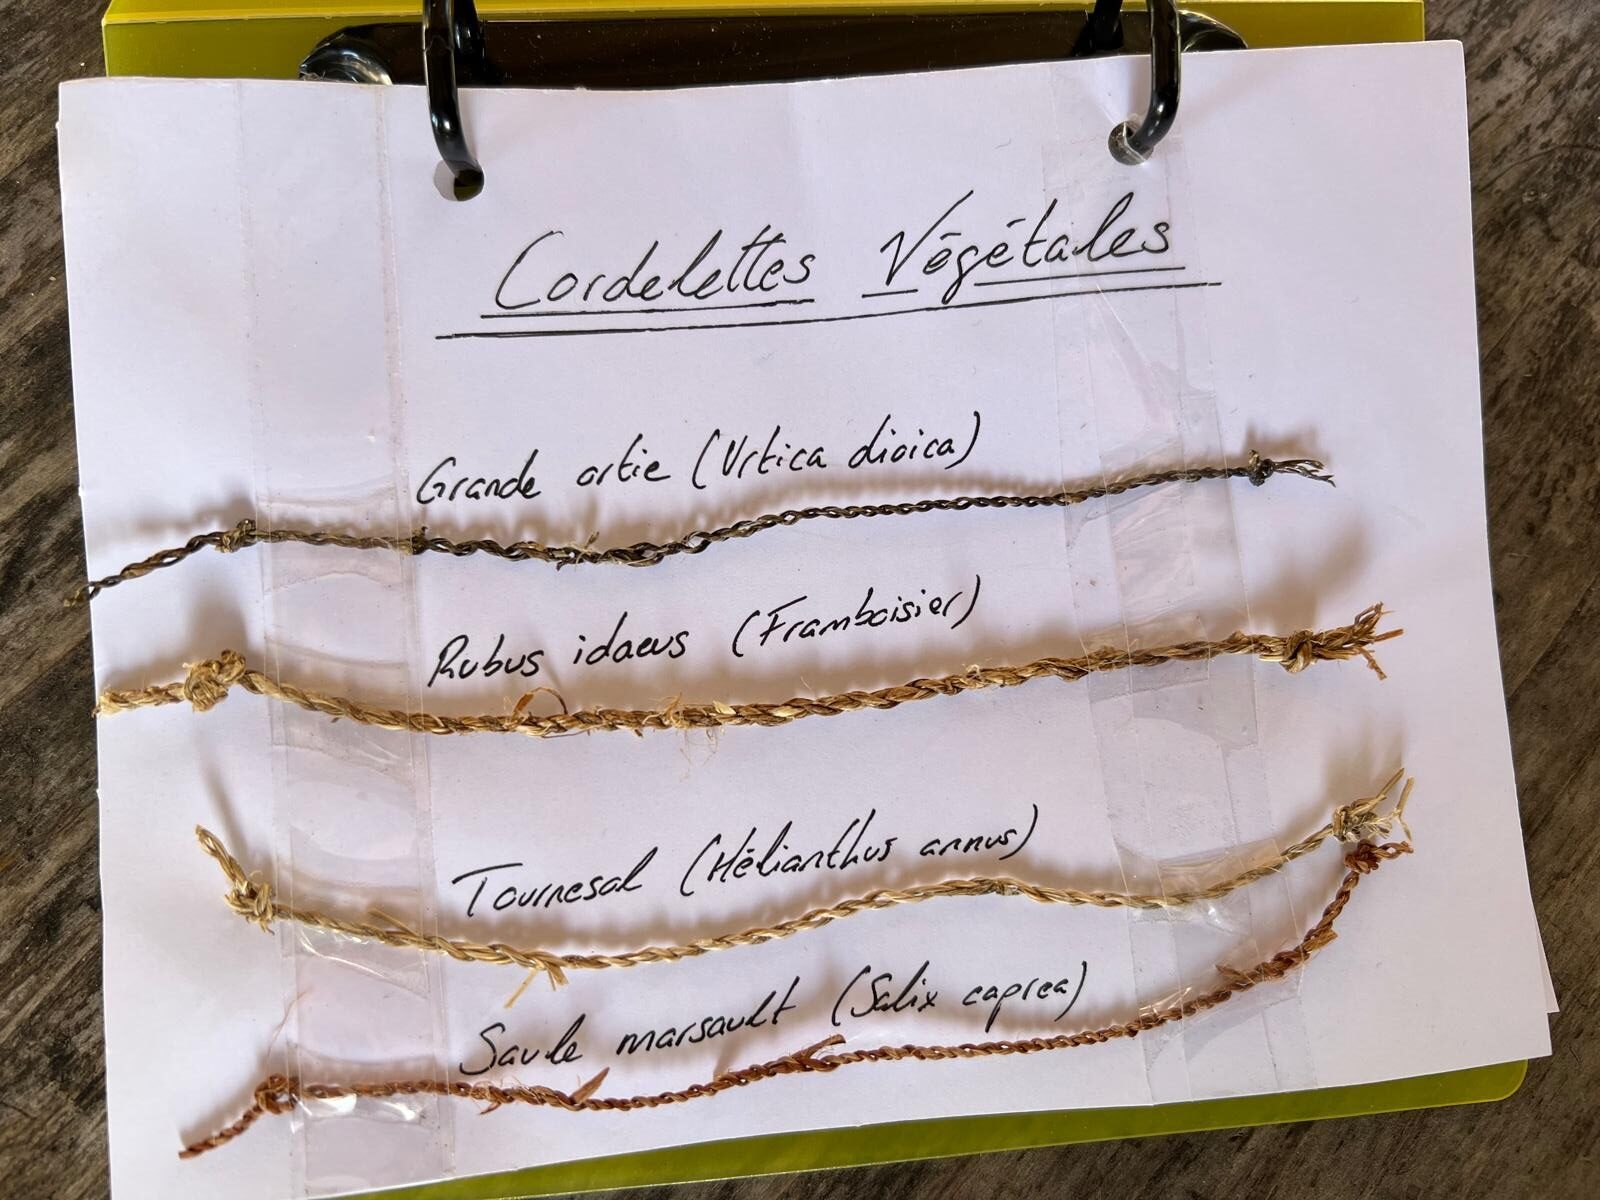 Cordelettes Végétales
Grande ortie (Urtica dioica)
Rubus idaeus (Framboisier)
Tournesol (Hélianthus annus)
Saule marsault (Salix caprea)